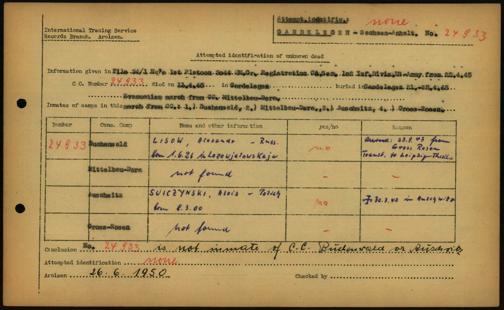 Attempt.identific.: none
International Tracing Service
Records Branch. Arolsen.
GARDELEGEN - Sachsen-Anhalt, No. 24 933
Attempted identification of unknown dead
Information given in File 54/1 1st Platoon Registration Inf.Divis. Army from 22.4.65
C.C. Number 24 933 died on 13.4.65 in Gardelegen buried in Gardelegen 21.-22.4.65
Evacuation march from CC. Mittelbau-Dora,
Inmates of camps in this march from CC: 1.) Buchenwald, 2.) Mittelbau-Dora, 3.) Auschwitz, 4.) Gross-Rosen.
Number Conc. Camp Name and other information yes/no Reason
24 933 Buchenwald LISOW, Alexander - Russ.
born 1.6.26 no from Gross Rosen
Transf. to Leipzig-Thekla
Mittelbau-Dora not found
Auschwitz SWICZYNSKI, Alois - Polish
born 8.3.00 no in Auschwitz
Gross-Rosen not found
Conclusion No. 24 933 is not inmate of C.C. Buchenwald or Auschwitz
Attempted identification none
Arolsen 26. 6. 1950 Checked by